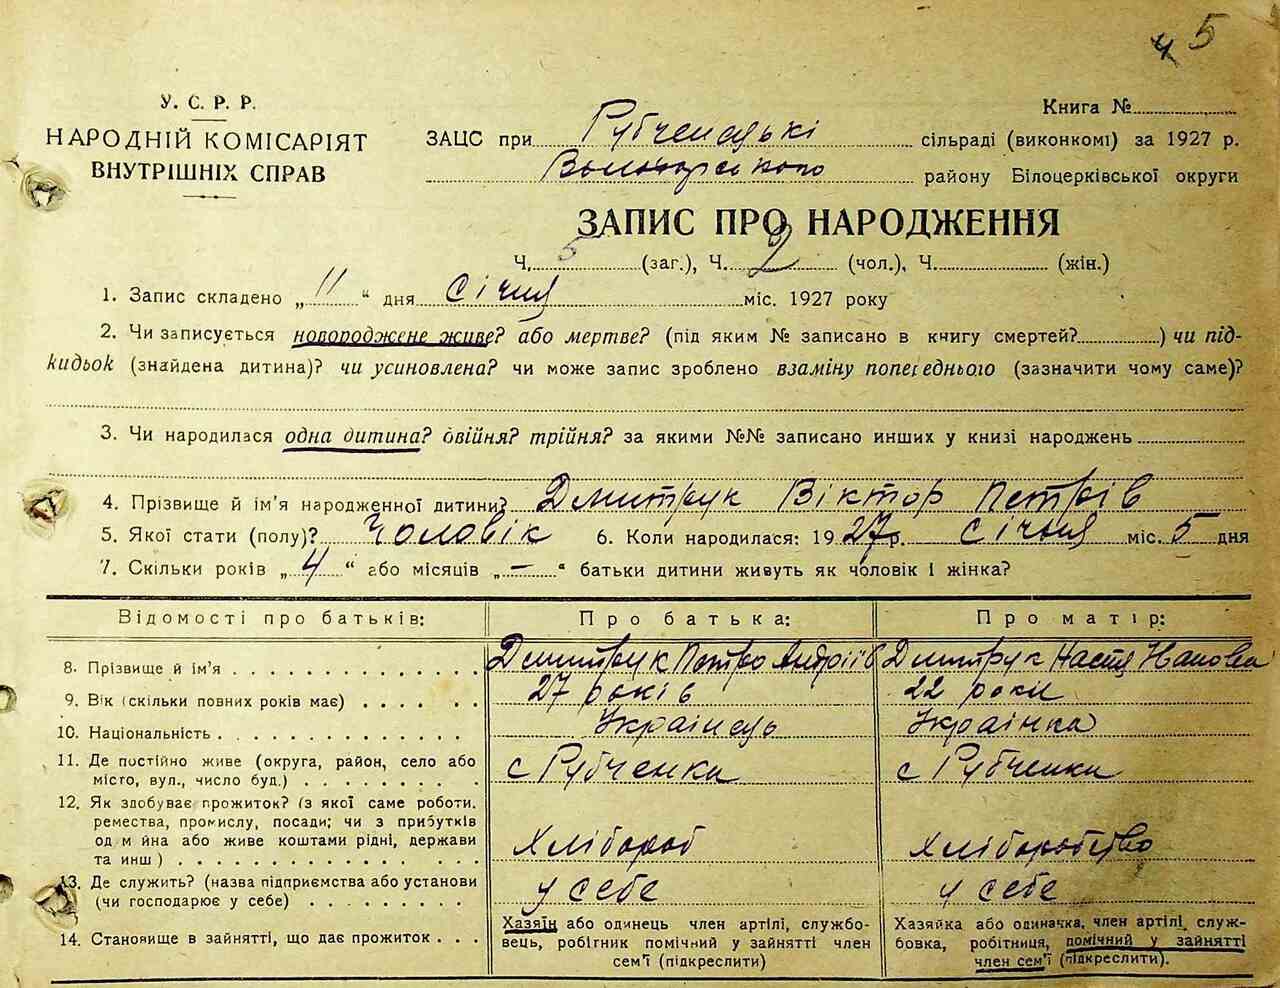 4 5
У. С. Р. Р.
НАРОДНІЙ КОМІСАРІЯТ
ВНУТРІШНІХ СПРАВ
Книга №
ЗАЦС при Рубченській сільраді (виконкомі) за 1927 р.
Володарського району Білоцерківської округи
ЗАПИС ПРО НАРОДЖЕННЯ
Ч. 5 (заг.), Ч. 2 (чол.), Ч. (жін.)
1. Запис складено „ 11 “ дня січня міс. 1927 року
2. Чи записується новороджене живе? або мертве? (під яким № записано в книгу смертей? ) чи під-
кидьок (знайдена дитина)? чи усиновлена? чи може запис зроблено взаміну попереднього (зазначити чому саме)?
3. Чи народилася одна дитина? двійня? трійня? за якими №№ записано инших у книзі народжень
4. Прізвище й ім'я народженної дитини? Дмитрук Віктор Петрів
5. Якої стати (полу)? Чоловік 6. Коли народилася: 1927р. січня міс. 5 дня
7. Скільки років „ 4 “ або місяців „ — “ батьки дитини живуть як чоловік і жінка?
Відомості про батьків: Про батька: Про матір:
8. Прізвище й ім'я Дмитрук Петро Андріїв Дмитрук Настя Іванова
9. Вік (скільки повних років має) 27 років 22 роки
10. Національність Українець Українка
11. Де постійно живе (округа, район, село або
місто, вул., число буд.) с Рубченки с Рубченки
12. Як здобуває прожиток? (з якої саме роботи.
ремества, промислу, посади; чи з прибутків
од м йна або живе коштами рідні, держави
та инш) Хлібороб Хліборобство
13. Де служить? (назва підприємства або установи
(чи господарює у себе) у себе у себе
14. Становище в зайнятті, що дає прожиток
Хазяїн або одинець член артілі, службо-
вець, робітник помічний у зайнятті член
сем'ї (підкреслити)
Хазяйка або одиначка, член артілі, служ-
бовка, робітниця, помічний у зайнятті
член сем'ї (підкреслити).